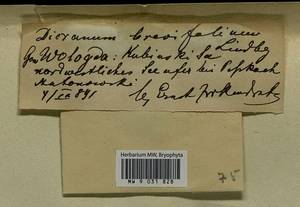 Dicranum brevifolium
Lindbg
Gouv. Wologda: Kubinski See
nordwestliches Seeufer bei
4/IX 891
leg Ernst
Herbarium MW, Bryophyta
MW 9 031 828
75